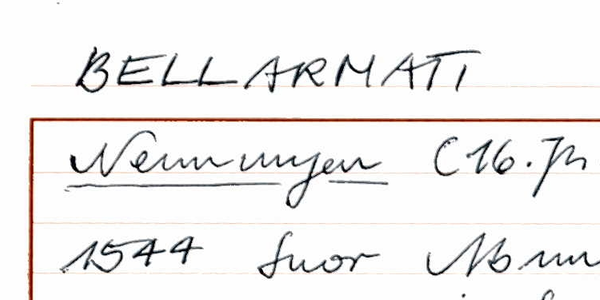 BELLARMATI
Nennungen (16. Jh
1544 Suor